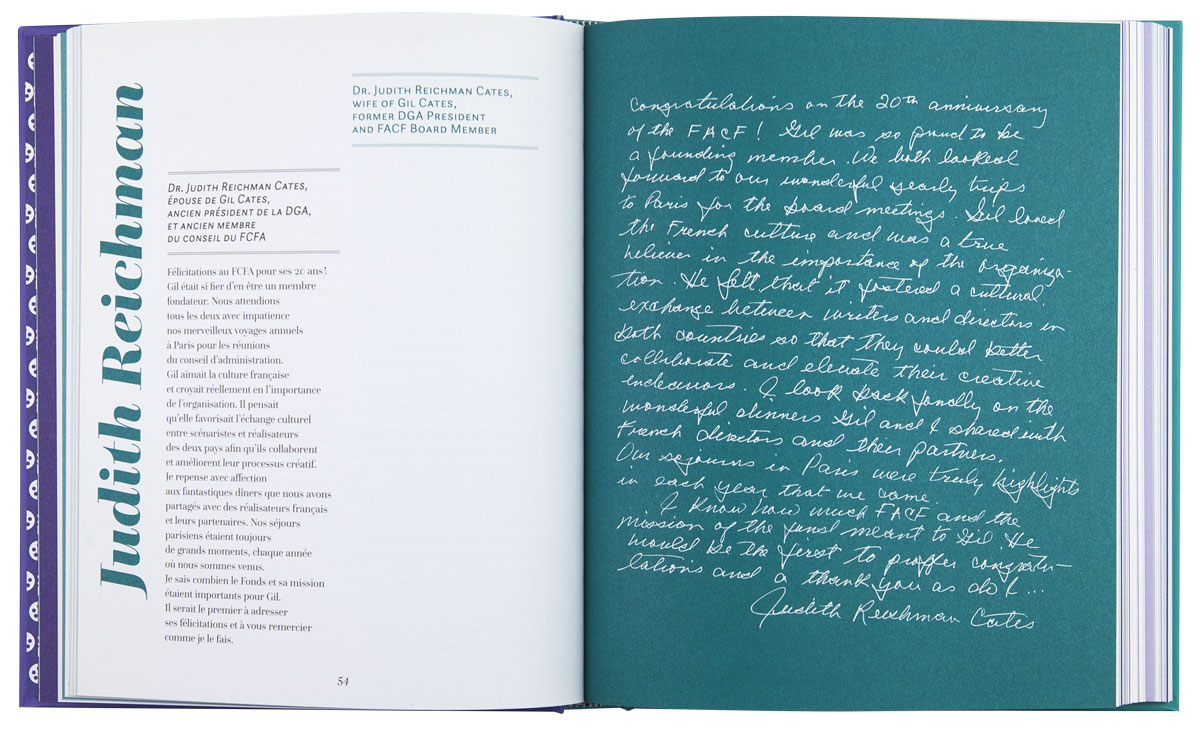 Judith Reichman
DR. JUDITH REICHMAN CATES,
ÉPOUSE DE GIL CATES,
ANCIEN PRÉSIDENT DE LA DGA,
ET ANCIEN MEMBRE
DU CONSEIL DU FCFA
Félicitations au FCFA pour ses 20 ans !
Gil était si fier d'en être un membre
fondateur. Nous attendions
tous les deux avec impatience
nos merveilleux voyages annuels
à Paris pour les réunions
du conseil d'administration.
Gil aimait la culture française
et croyait réellement en l'importance
de l'organisation. Il pensait
qu'elle favorisait l'échange culturel
entre scénaristes et réalisateurs
des deux pays afin qu'ils collaborent
et améliorent leur processus créatif.
Je repense avec affection
aux fantastiques dîners que nous avons
partagés avec des réalisateurs français
et leurs partenaires. Nos séjours
parisiens étaient toujours
de grands moments, chaque année
où nous sommes venus.
Je sais combien le Fonds et sa mission
étaient importants pour Gil.
Il serait le premier à adresser
ses félicitations et à vous remercier
comme je le fais.
DR. JUDITH REICHMAN CATES,
WIFE OF GIL CATES,
FORMER DGA PRESIDENT
AND FACF BOARD MEMBER
54
Congratulations on the 20th anniversary
of the FACF! Gil was so proud to be
a founding member. We both looked
forward to our wonderful yearly trips
to Paris for the board meetings. Gil loved
the French culture and was a true
believer in the importance of the organiza-
tion. He felt that it fostered a cultural
exchange between writers and directors in
both countries so that they could better
collaborate and elevate their creative
endeavors. I look back fondly on the
wonderful dinners Gil and I shared with
French directors and their partners.
Our sejourns in Paris were truly highlights
in each year that we came.
I know how much FACF and the
mission of the fund meant to Gil. He
would be the first to proffer congratu-
lations and a thank you as do I...
Judith Reichman Cates